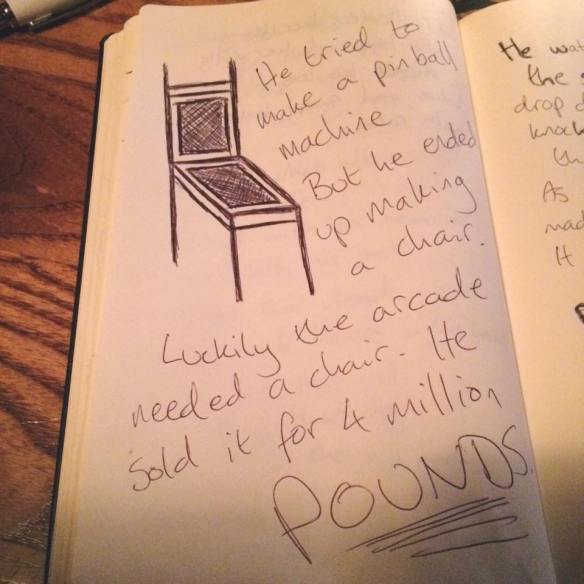 He tried to
make a pinball
machine
But he ended
up making
a chair.
Luckily the arcade
needed a chair. He
sold it for 4 million
POUNDS.
He
the
drop
As
It